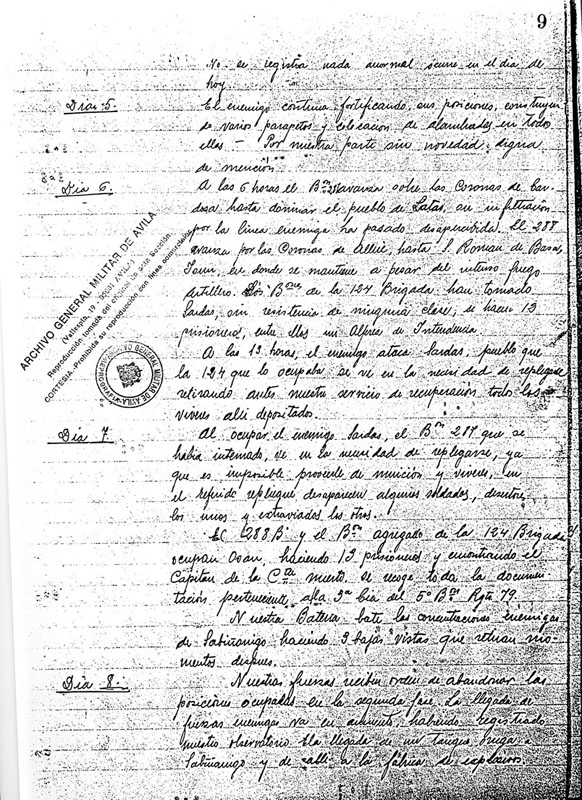 9
No se registra nada anormal ocurre en el día de
hoy
Dias 5.
El enemigo continua fortificando, sus posiciones, construyen
do varios parapetos y colocacion de alambradas en todo
ellos — Por nuestra parte sin novedad digna
de mención
Dia 6.
A las 6 horas el Bon avanza sobre las Coronas de
hasta dominar el pueblo de Latas, su infiltración
por la linea enemiga ha pasado desapercibida. El 287
avanza por las Coronas de Allué, hasta S. Roman de Basa
en donde se mantiene a pesar del intenso fuego
Artillero. Los Bones de la 124 Brigada han tomado
Sardas, sin resistencia de ninguna clase, se hacen 13
prisioneros, entre ellos un Alferez de Intendencia.
A las 13 horas, el enemigo ataca Sardas, pueblo que
la 124 que lo ocupaba se ve en la necesidad de replegarse
retirando antes nuestro servicio de recuperación todo los
viveres alli depositados.
Dia 7.
Al ocupar el enemigo Sardas, el Bon 287 que se
habia internado, ve en la necesidad de replegarse, ya
que es imposible proveerle de municion y viveres, en
el referido repliegue desaparecen algunos soldados,
los unos y extraviados los otros.
El 288 B y el Bon agregado de la 124 Brigada
ocupan Osan, haciendo 13 prisioneros y encontrando el
Capitan de la Cia muerto, se recoge toda la documen
tación perteneciente a la 3a Cia del 5º Bon Rgto 79.
Nuestra Bateria bate las concentraciones enemigas
de Sabiñanigo haciendo 9 bajas vistas que retiran mo-
mentos despues.
Dia 8.
Nuestras fuerzas reciben orden de abandonar las
posiciones ocupadas en la segunda fase. La llegada de
fuerzas enemigas va en aumento, habiendo registrado
nuestro observatorio la llegada de
Sabiñanigo y de alli a la fábrica de explosivos.
ARCHIVO GENERAL MILITAR DE AVILA
Reproducción tomada del original de esta Sección.
CORTESIA.-Prohibida su reproducción con fines comerciales